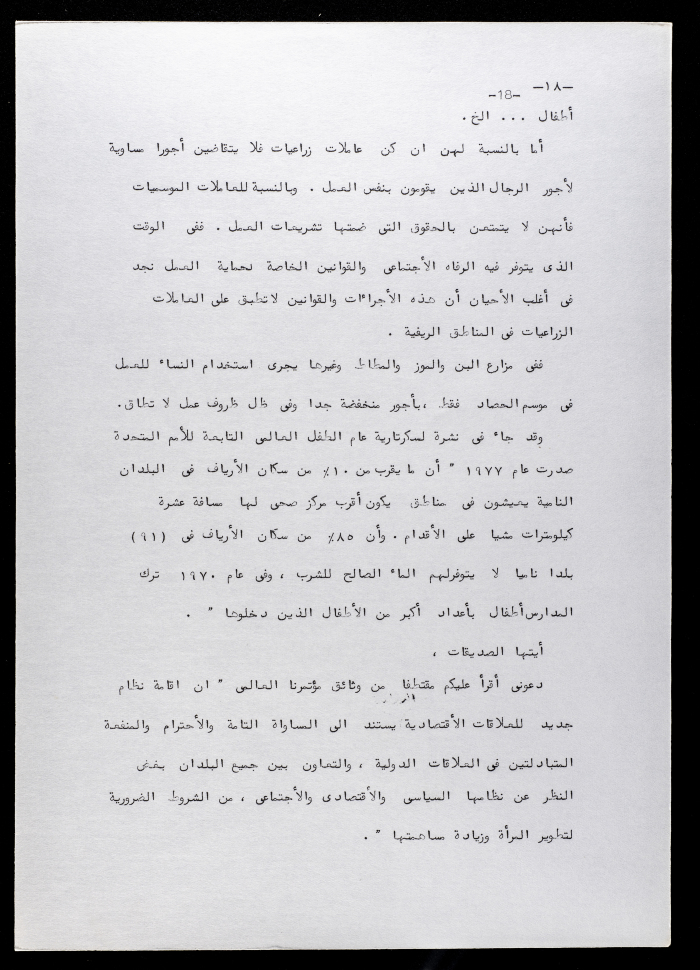 -١٨-
-18-
أطفال ... الخ .
أما بالنسبة لهن ان كن عاملات زراعيات فلا يتقاضين أجورا مساوية
لأجور الرجال الذين يقومون بنفس العمل . وبالنسبة للعاملات الموسميات
فأنهن لا يتمتعن بالحقوق التى ضمتها تشريعات العمل . ففى الوقت
الذى يتوفر فيه الرفاه الأجتماعى والقوانين الخاصة لحماية العمل نجد
فى أغلب الأحيان أن هذه الأجراءات والقوانين لاتطبق على العاملات
الزراعيات فى المناطق الريفية .
ففى مزارع البن والموز والمطاط وغيرها يجرى استخدام النساء للعمل
فى موسم الحصاد فقط ،بأجور منخفضة جدا وفى ظل ظروف عمل لا تطاق.
وقد جاء فى نشرة لسكرتارية عام الطفل العالمى التابعة للأمم المتحدة
صدرت عام ١٩٧٧ " أن ما يقرب من ١٠٪ من سكان الأرياف فى البلدان
النامية يعيشون فى مناطق يكون أقرب مركز صحى لها مسافة عشرة
كيلومترات مشيا على الأقدام . وأن ٨٥٪ من سكان الأرياف فى (٩١)
بلدا ناميا لا يتوفرلهم الماء الصالح للشرب ، وفى عام ١٩٧٠ ترك
المدارس أطفال بأعداد أكبر من الأطفال الذين دخلوها " .
أيتها الصديقات ،
دعونى أقرأ عليكم مقتطفا من وثائق مؤتمرنا العالمى " ان اقامة نظام
جديد للعلاقات الأقتصادية يستند الى المساواة التامة والأحترام والمنفعة
المتبادلتين فى العلاقات الدولية ، والتعاون بين جميع البلدان بغض
النظر عن نظامها السياسى والأقتصادى والأجتماعى ، من الشروط الضرورية
لتطوير المرأة وزيادة مساهمتها " .